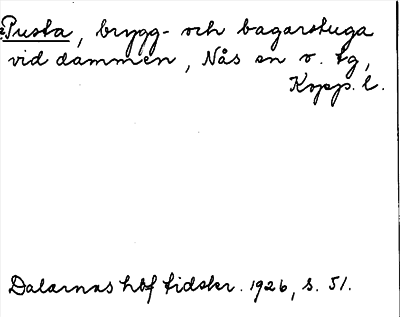 Pusta, brygg- och bagarstuga
vid dammen, Nås sn o. tg,
Kopp. l.
Dalarnas hbf tidskr. 1926, s. 51.